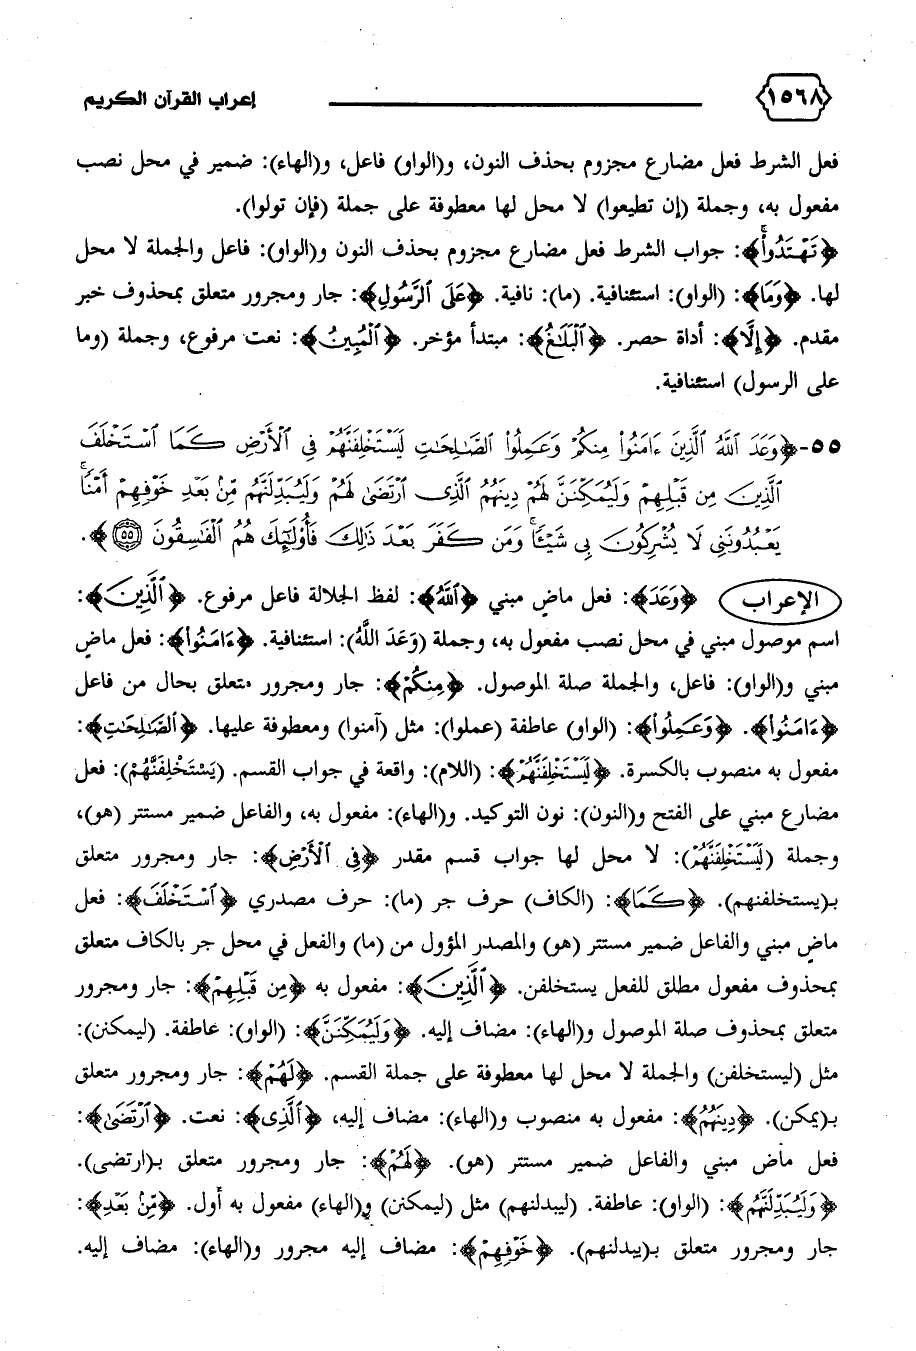 ١٥٦٨ إعراب القرآن الكريم
فعل الشرط فعل مضارع مجزوم بحذف النون، و(الواو) فاعل، و(الهاء): ضمير في محل نصب
مفعول به، وجملة (إن تطيعوا) لا محل لها معطوفة على جملة (فإن تولوا).
﴿تَهْتَدُواْ﴾: جواب الشرط فعل مضارع مجزوم بحذف النون و(الواو): فاعل والجملة لا محل
لها. ﴿وَمَا﴾: (الواو): استئنافية. (ما): نافية. ﴿عَلَى ٱلرَّسُولِ﴾: جار ومجرور متعلق بمحذوف خبر
مقدم. ﴿إِلَّا﴾: أداة حصر. ﴿ٱلْبَلَٰغُ﴾: مبتدأ مؤخر. ﴿ٱلْمُبِينُ﴾: نعت مرفوع، وجملة (وما
على الرسول) استئنافية.
٥٥-﴿وَعَدَ ٱللَّهُ ٱلَّذِينَ ءَامَنُواْ مِنكُمْ وَعَمِلُواْ ٱلصَّٰلِحَٰتِ لَيَسْتَخْلِفَنَّهُمْ فِى ٱلْأَرْضِ كَمَا ٱسْتَخْلَفَ
ٱلَّذِينَ مِن قَبْلِهِمْ وَلَيُمَكِّنَنَّ لَهُمْ دِينَهُمُ ٱلَّذِى ٱرْتَضَىٰ لَهُمْ وَلَيُبَدِّلَنَّهُم مِّنۢ بَعْدِ خَوْفِهِمْ أَمْنًاۚ
يَعْبُدُونَنِى لَا يُشْرِكُونَ بِى شَيْـًٔاۚ وَمَن كَفَرَ بَعْدَ ذَٰلِكَ فَأُوْلَٰٓئِكَ هُمُ ٱلْفَٰسِقُونَ ۝٥٥﴾.
الإعراب ﴿وَعَدَ﴾: فعل ماضٍ مبني ﴿ٱللَّهُ﴾: لفظ الجلالة فاعل مرفوع. ﴿ٱلَّذِينَ﴾:
اسم موصول مبني في محل نصب مفعول به، وجملة (وَعَدَ اللَّهُ): استئنافية. ﴿ءَامَنُواْ﴾: فعل ماضٍ
مبني و(الواو): فاعل، والجملة صلة الموصول. ﴿مِنكُمْ﴾: جار ومجرور متعلق بحال من فاعل
﴿ءَامَنُواْ﴾. ﴿وَعَمِلُواْ﴾: (الواو) عاطفة (عملوا): مثل (آمنوا) ومعطوفة عليها. ﴿ٱلصَّٰلِحَٰتِ﴾:
مفعول به منصوب بالكسرة. ﴿لَيَسْتَخْلِفَنَّهُمْ﴾: (اللام): واقعة في جواب القسم. (يَسْتَخْلِفَنَّهُمْ): فعل
مضارع مبني على الفتح و(النون): نون التوكيد. و(الهاء): مفعول به، والفاعل ضمير مستتر (هو)،
وجملة (لَيَسْتَخْلِفَنَّهُمْ): لا محل لها جواب قسم مقدر ﴿فِى ٱلْأَرْضِ﴾: جار ومجرور متعلق
بـ(يستخلفنهم). ﴿كَمَا﴾: (الكاف) حرف جر (ما): حرف مصدري ﴿ٱسْتَخْلَفَ﴾: فعل
ماضٍ مبني والفاعل ضمير مستتر (هو) والمصدر المؤول من (ما) والفعل في محل جر بالكاف متعلق
بمحذوف مفعول مطلق للفعل يستخلفن. ﴿ٱلَّذِينَ﴾: مفعول به ﴿مِن قَبْلِهِمْ﴾: جار ومجرور
متعلق بمحذوف صلة الموصول و(الهاء): مضاف إليه. ﴿وَلَيُمَكِّنَنَّ﴾: (الواو): عاطفة. (ليمكنن):
مثل (ليستخلفن) والجملة لا محل لها معطوفة على جملة القسم. ﴿لَهُمْ﴾: جار ومجرور متعلق
بـ(يمكن). ﴿دِينَهُمُ﴾: مفعول به منصوب و(الهاء): مضاف إليه، ﴿ٱلَّذِى﴾: نعت. ﴿ٱرْتَضَىٰ﴾:
فعل ماضٍ مبني والفاعل ضمير مستتر (هو). ﴿لَهُمْ﴾: جار ومجرور متعلق بـ(ارتضى).
﴿وَلَيُبَدِّلَنَّهُم﴾: (الواو): عاطفة. (ليبدلنهم) مثل (ليمكنن) و(الهاء) مفعول به أول. ﴿مِّنۢ بَعْدِ﴾:
جار ومجرور متعلق بـ(يبدلنهم). ﴿خَوْفِهِمْ﴾: مضاف إليه مجرور و(الهاء): مضاف إليه.